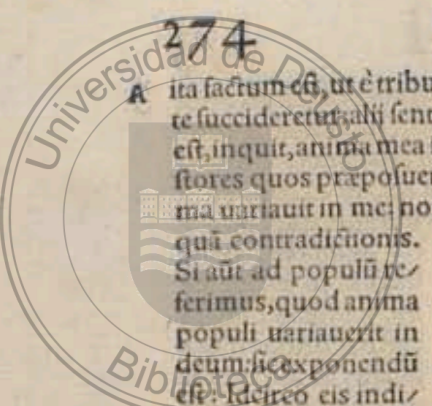 274
A ita factum est, ut è tribu
te succideretur: alij sent
est, inquit, anima mea
stores quos præposuer
ma uariauit in me: no
quã contradictionis.
Si aũt ad populũ re/
ferimus, quod anima
populi uariauerit in
deum: sic exponendũ
est: Idcirco eis indi/
Universidad de Deusto
Biblioteca